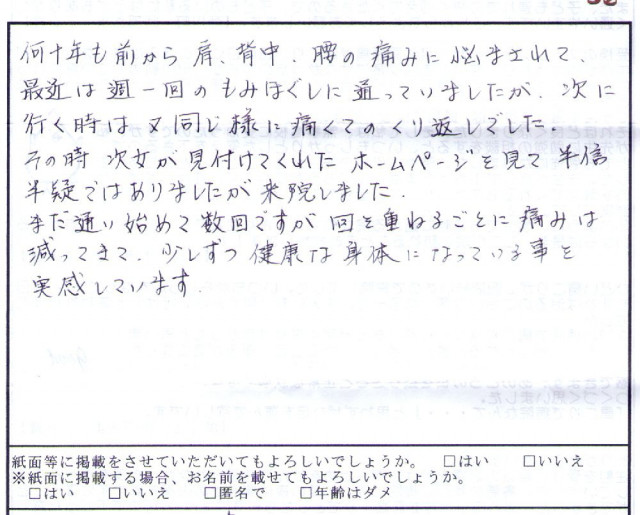 何十年も前から肩、背中、腰の痛みに悩まされて、
最近は週一回のもみほぐしに通っていましたが、次に
行く時は又同じ様に痛くてのくり返しでした。
その時次女が見付けてくれたホームページを見て半信
半疑ではありましたが来院しました。
まだ通い始めて数回ですが回を重ねるごとに痛みは
減ってきて、少しずつ健康な身体になっている事を
実感しています。
紙面等に掲載をさせていただいてもよろしいでしょうか。 □はい □いいえ
※紙面に掲載する場合、お名前を載せてもよろしいでしょうか。
□はい □いいえ □匿名で □年齢はダメ